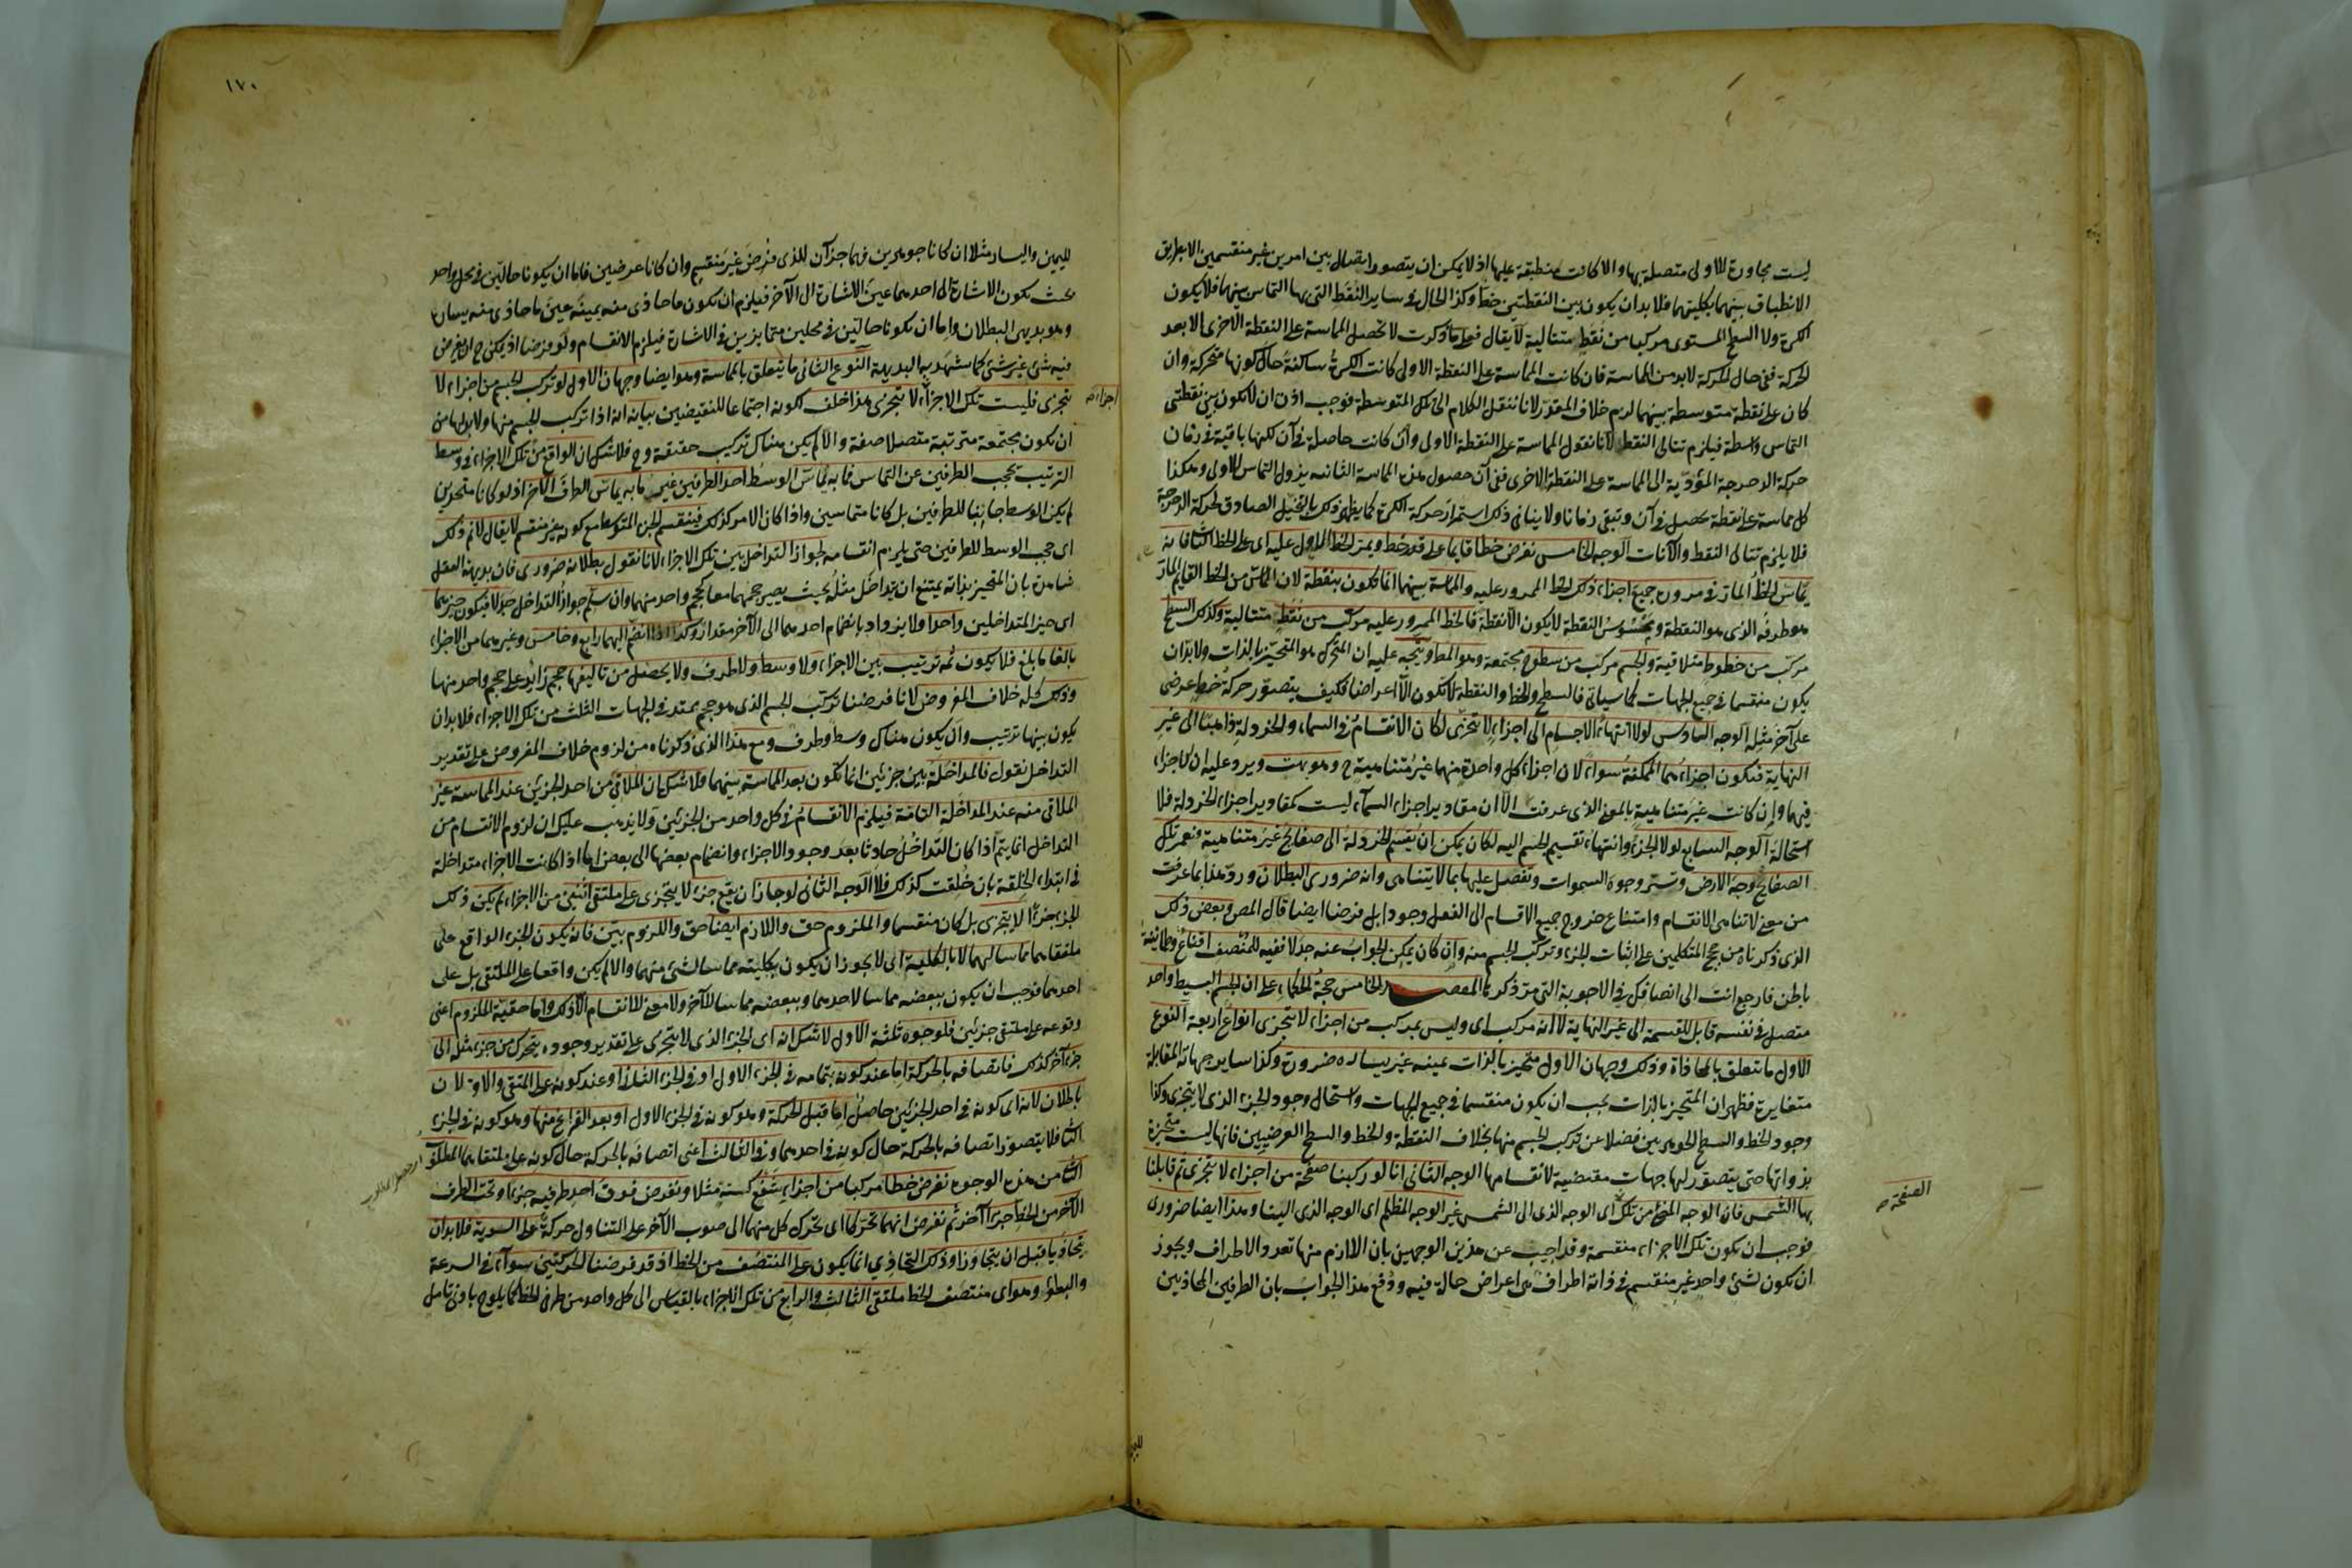 ليست مجاورة للاولى متصلة بها والا كانت منطبقة عليها اذ لا يمكن ان يتصور اتصال بين امرين غير منقسمين الا بطريق
الانطباق بينهما بكليتهما فلا بد ان يكون بين النقطتين خط وكذا الحال في ساير النقط التى بها التماس بينهما فلا يكون
الكرة ولا السطح المستوى مركبا من نقط متتالية لا يقال فعلى ما ذكرت لا تحصل المماسة على النقطة الاخرى الا بعد
الحركة ففى حال الحركة لا بد من المماسة فان كانت المماسة على النقطة الاولى كانت الكرة ساكنة حال كونها متحركة وان
كان على نقطة متوسطة بينهما لزم خلاف المقدر لانا ننقل الكلام الى تلك المتوسطة فوجب اذن ان لا يكون بين نقطتى
التماس واسطة فيلزم تتالى النقط لانا نقول المماسة على النقطة الاولى وان كانت حاصلة في آن لكنها باقية في زمان
حركة الدحرجة المؤدية الى المماسة على النقطة الاخرى ففى آن حصول هذه المماسة الثانية يزول التماس الاولى وهكذا
كل مماسة على نقطة تحصل في آن وتبقى زمانا ولا ينافى ذلك استمرار حركة الكرة كما يظهر ذلك بالتخيل الصادق لحركة الدحرجة
فلا يلزم تتالى النقط والآنات الوجه الخامس نفرض خطا قايما على خط ويمر الخط الاول عليه اى على الخط الثانى فانه
يماس الخط المار في مروره جميع اجزاء ذلك الخط الممرور عليه والمماسة بينهما انما تكون بنقطة لان المماس من الخط القايم المار
هو طرفه الذى هو النقطة وممسوس النقطة لا يكون الا نقطة فالخط الممرور عليه مركب من نقط متتالية وكذلك السطح
مركب من خطوط متلاقية والجسم مركب من سطوح مجتمعة وهو المط ويتجه عليه ان المتحرك هو المتحيز بالذات ولا بد ان
يكون منقسما في جميع الجهات كما سياتى فالسطح والخط والنقطة لا تكون الا اعراضا فكيف يتصور حركة خط عرضى
على آخر مثله الوجه السادس لولا انتهاء الاجسام الى اجزاء لا تتجزى لكان الانقسام في السماء والخردلة ذاهبا الى غير
النهاية فتكون اجزاءهما الممكنة سواء لان اجزاء كل واحدة منهما غير متناهية ح وهو بهت ويرد عليه ان الاجزاء
فيهما وان كانت غير متناهية بالمعنى الذى عرفت الا ان مقادير اجزاء السماء ليست كمقادير اجزاء الخردلة فلا
استحالة الوجه السابع لولا الجزء وانتهاء تقسيم الجسم اليه لكان يمكن ان يقسم الخردلة الى صفائح غير متناهية وتغمر تلك
الصفائح وجه الارض وتستر وجوه السموات وتفضل عليها بما لا يتناهى وانه ضرورى البطلان ورد هذا بما عرفت
من معنى لا تناهى الانقسام وامتناع خروج جميع الاقسام الى الفعل وجودا بل فرضا ايضا قال المص وبعض ذلك
الذى ذكرناه من حجج المتكلمين على اثبات الجزء وتركب الجسم منه وان كان يمكن الجواب عنه جدلا ففيه للمنصف اقناع وطمانينة
باطن فارجع انت الى انصافك في الاجوبة التى مر ذكرها المقصد الخامس حجة الحكماء على ان الجسم البسيط واحد
متصل في نفسه قابل للقسمة الى غير النهاية لا انه مركب اى وليس بمركب من اجزاء لا تتجزى انواع اربعة النوع
الاول ما تتعلق بالمحاذاة وذلك وجهان الاول متحيز بالذات يمينه غير يساره ضرورة وكذا ساير جهاته المقابلة
متغايرة فظهر ان المتحيز بالذات يجب ان يكون منقسما في جميع الجهات واستحال وجود الجزء الذى لا يتجزى وكذا
وجود الخط والسطح الجوهريين فضلا عن تركب الجسم منها بخلاف النقطة والخط والسطح العرضيين فانها ليست متحيزة
بذواتها حتى يتصور لها جهات مقتضية لانقسامها الوجه الثانى انا لو ركبنا صفحة من اجزاء لا تتجزى ثم قابلنا
بها الشمس فان الوجه المضئ من تلك اى الوجه الذى الى الشمس غير الوجه المظلم اى الوجه الذى الينا وهذا ايضا ضرورى
الصفحة صح
فوجب ان تكون تلك الاجزاء منقسمة وقد اجيب عن هذين الوجهين بان اللازم منها تعدد الاطراف ويجوز
ان تكون لشئ واحد غير منقسم في ذاته اطراف هى اعراض حالة فيه ودفع هذا الجواب بان الطرفين المحاذيين
١٧٠
لليمين واليسار مثلا ان كانا جوهرين فهما جزآن للذى فرض غير منقسم وان كانا عرضين فاما ان يكونا حالين في محل واحد
بحيث تكون الاشارة الى احدهما عين الاشارة الى الآخر فيلزم ان يكون ما حاذى منه يمينه عين ما حاذى منه يساره
وهو بديهى البطلان واما ان يكونا حالين في محلين متمايزين في الاشارة فيلزم الانقسام ولو فرضا اذ يمكن ح ان يفرض
فيه شئ غير شئ كما شهد به البديهة النوع الثانى ما يتعلق بالمماسة وهو ايضا وجهان الاول لو تركب الجسم من اجزاء لا
تتجزى فليست تلك الاجزاء لا تتجزى هذا خلف لكونه اجتماعا للنقيضين بيانه انه اذا تركب الجسم منها ولا بد لها من
اجزاء صح
ان تكون مجتمعة مترتبة متصلا صفة والا لم يكن هناك تركيب حقيقة وح فلا شك ان الواقع من تلك الاجزاء في وسط
الترتيب يحجب الطرفين عن التماس فما به يماس الوسط احد الطرفين غير ما به يماس الطرف الآخر اذ لو كانا متحدين
لم يكن الوسط حاجبا للطرفين بل كانا متماسين واذا كان الامر كذلك فينقسم الجزء المتوسط مع كونه غير منقسم لا يقال لا نم ذلك
اى حجب الوسط للطرفين حتى يلزم انقسامه لجواز التداخل بين تلك الاجزاء لانا نقول بطلانه ضرورى فان بديهة العقل
شاهدة بان المتحيز بذاته يمتنع ان يتداخل مثله بحيث يصير حجمهما معا كحجم واحد منهما وان سلم جواز التداخل جدلا فيكون حيزهما
اى حيز المتداخلين واحدا ولا يزداد بانضمام احدهما الى الآخر مقدار وكذا اذا انضم اليهما رابع وخامس وغيرهما من الاجزاء
بالغا ما بلغ فلا يكون ثمه ترتيب بين الاجزاء ولا وسط ولا طرف ولا يحصل من تاليفها حجم زائد على حجم واحد منها
وذلك كله خلاف المفروض لانا فرضنا تركب الجسم الذى هو حجم ممتد في الجهات الثلث من تلك الاجزاء فلا بد ان
يكون بينها ترتيب وان يكون هناك وسط وطرف ومع هذا الذى ذكرناه من لزوم خلاف المفروض على تقدير
التداخل نقول فالمداخلة بين جزئين انما تكون بعد المماسة بينهما فلا شك ان الملاقى من احد الجزئين عند المماسة غير
الملاقى منه عند المداخلة التامة فيلزم الانقسام في كل واحد من الجزئين ولا يذهب عليك ان لزوم الانقسام من
التداخل انما يتم اذا كان التداخل حادثا بعد وجود الاجزاء وانضمام بعضها الى بعض اما اذا كانت الاجزاء متداخلة
في ابتداء الخلقة بان خلقت كذلك فلا الوجه الثانى لو جاز ان يقع جزء لا يتجزى على ملتقى اثنين من الاجزاء لم يكن ذلك
الجزء جزءا لا يتجزى بل كان منقسما والملزوم حق واللازم ايضا حق واللزوم بين فانه يكون الجزء الواقع على
ملتقاهما مماسا لهما لا بالكلية اى لا يجوز ان يكون بكليته مماسا لشئ منهما والا لم يكن واقعا على الملتقى بل على
احدهما فوجب ان يكون ببعضه مماسا لاحدهما وببعضه مماسا للآخر ولا معنى للانقسام الا ذلك واما حقية الملزوم اعنى
وقوعه على ملتقى جزئين فلوجوه ثلثة الاول لا شك انه اى الجزء الذى لا يتجزى على تقدير وجوده يتحرك من جزء مثله الى
جزء آخر كذلك فاتصافه بالحركة اما عند كونه بتمامه في الجزء الاول او في الجزء الثانى او عند كونه على الملتقى والاولان
باطلان لانه اى كونه في احد الجزئين حاصل اما قبل الحركة وهو كونه في الجزء الاول او بعد الفراغ منها وهو كونه في الجزء
الثانى فلا يتصور اتصافه بالحركة حال كونه في احدهما وفي الثالث اعنى اتصافه بالحركة حال كونه على ملتقاهما المطلوب
الثانى من هذه الوجوه نفرض خطا مركبا من اجزاء شفع كستة مثلا ونفرض فوق احد طرفيه جزءا وتحت الطرف
الآخر من الخط جزءا آخر ثم نفرض انهما تحركا اى تحرك كل منهما الى صوب الآخر على التناول حركة على السوية فلا بد ان
يتحاذيا قبل ان يتجاوزا وذلك التحاذى انما يكون على المنتصف من الخط اذ قد فرضنا الحركتين سواء في السرعة
والبطؤ وهو اى منتصف الخط ملتقى الثالث والرابع من تلك الاجزاء بالقياس الى كل واحد من طرفى الخط كما يلوح بادنى تامل